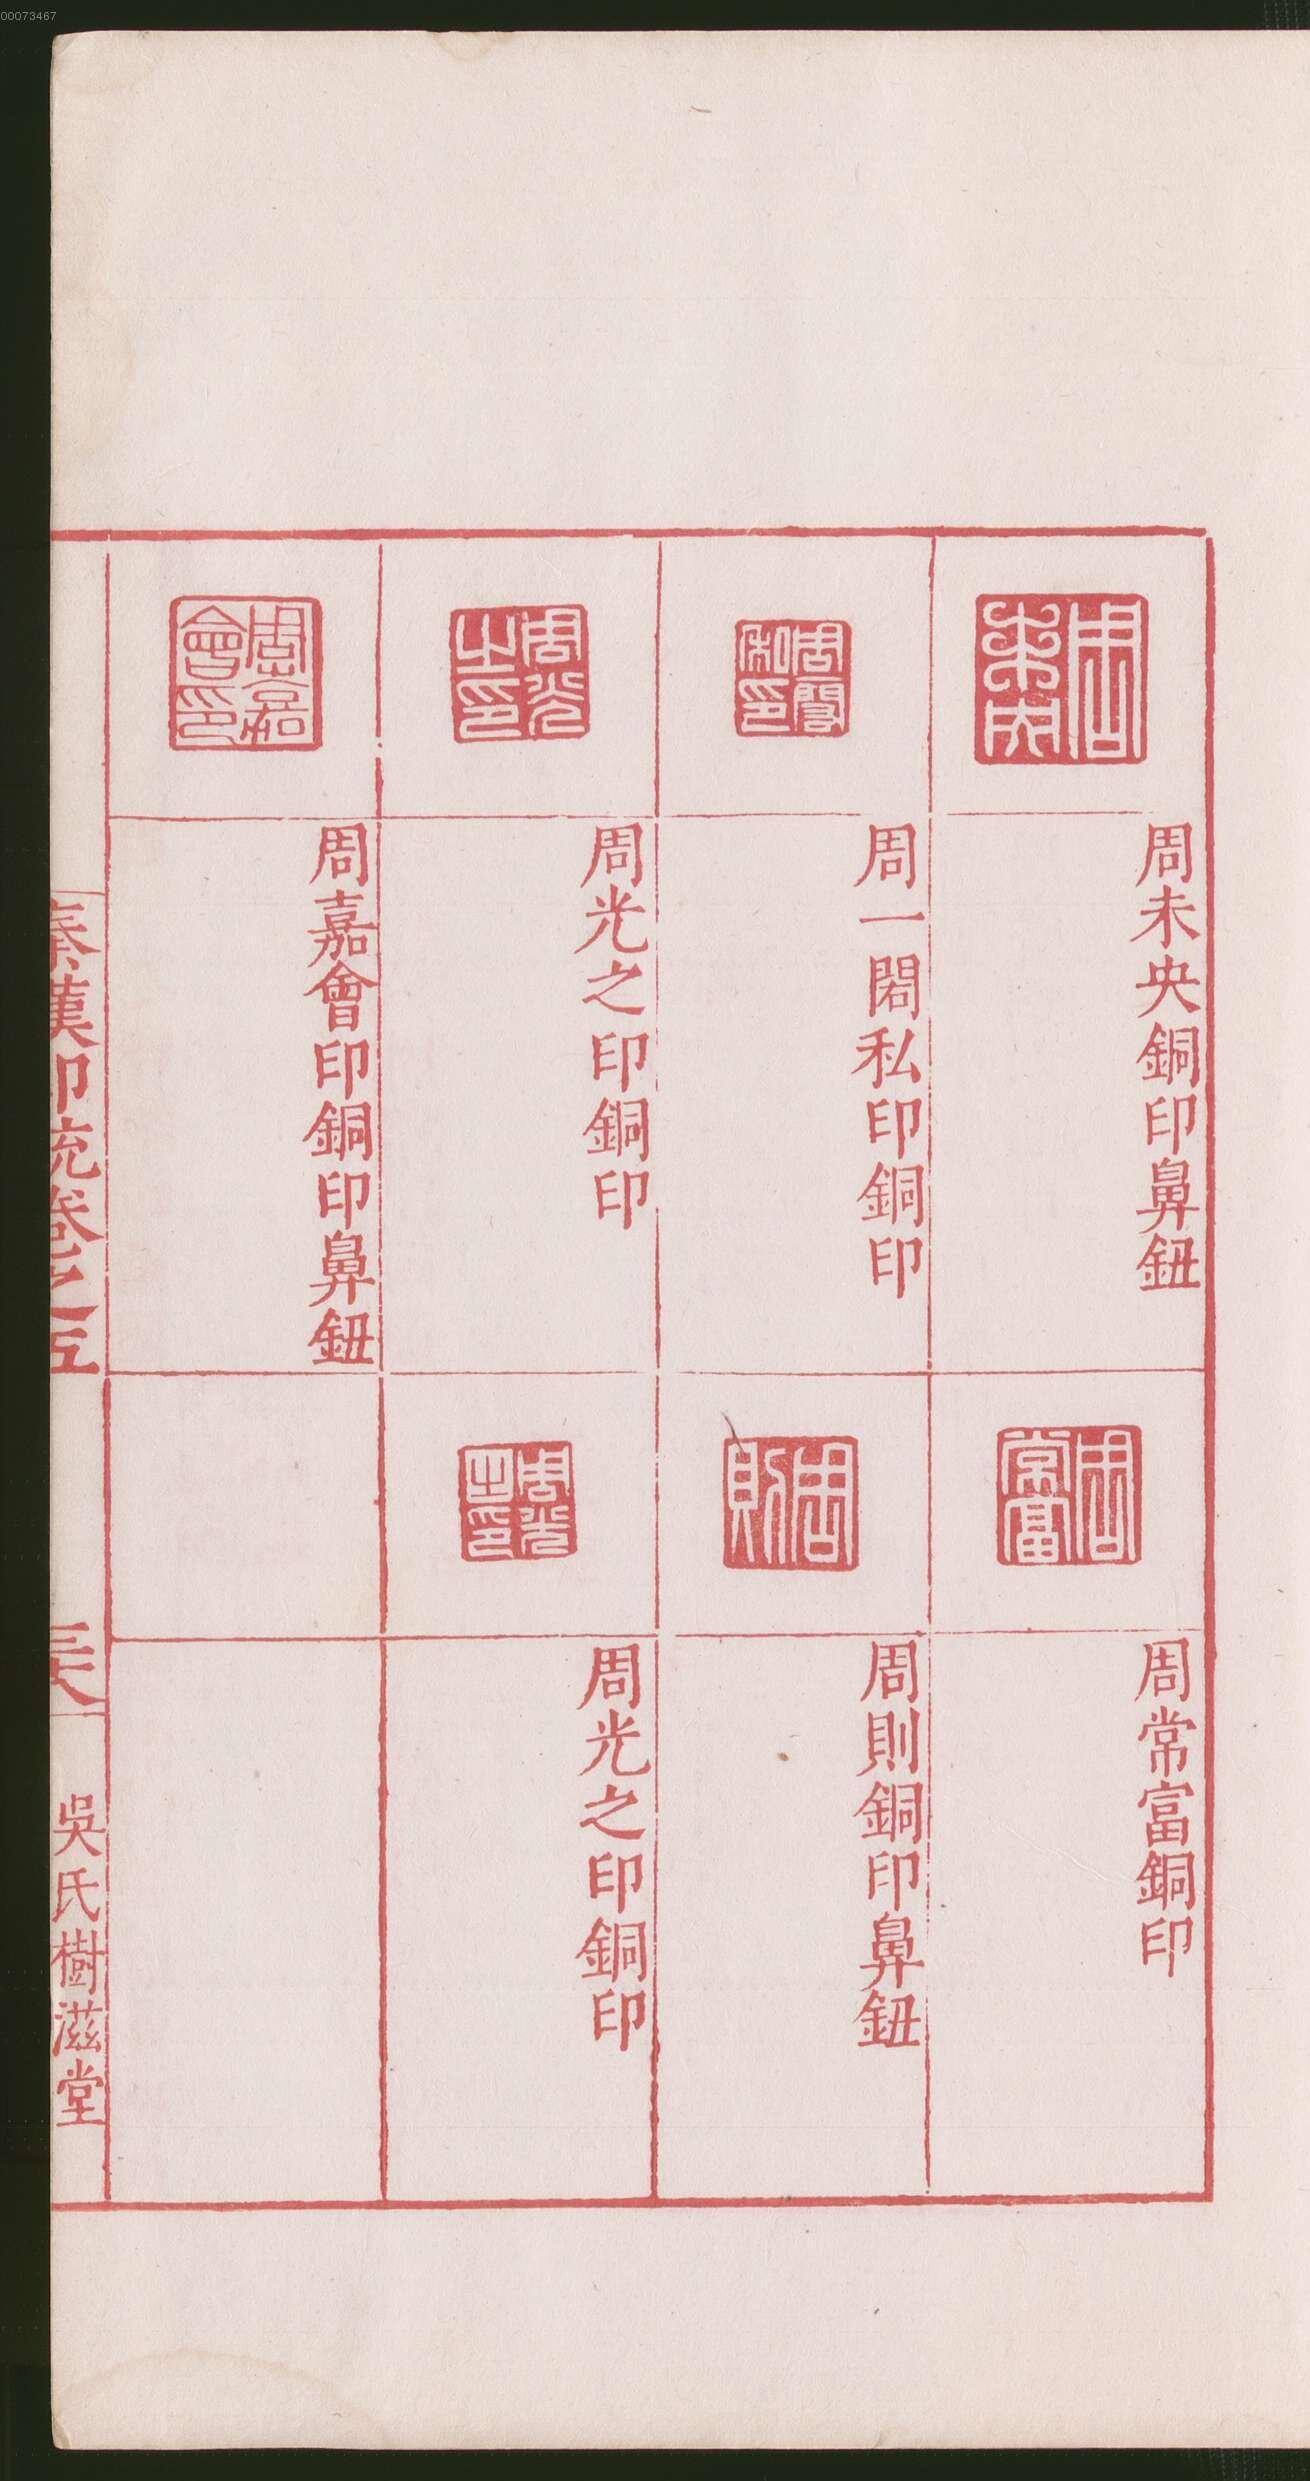 00073467
周未央
周未央銅印鼻鈕
周常富
周常富銅印
周一閎私印銅印
周則
周則銅印鼻鈕
周光之印
周光之印銅印
周光之印
周光之印銅印
周嘉會印
周嘉會印銅印鼻鈕
秦漢印統卷之五
吳氏樹滋堂